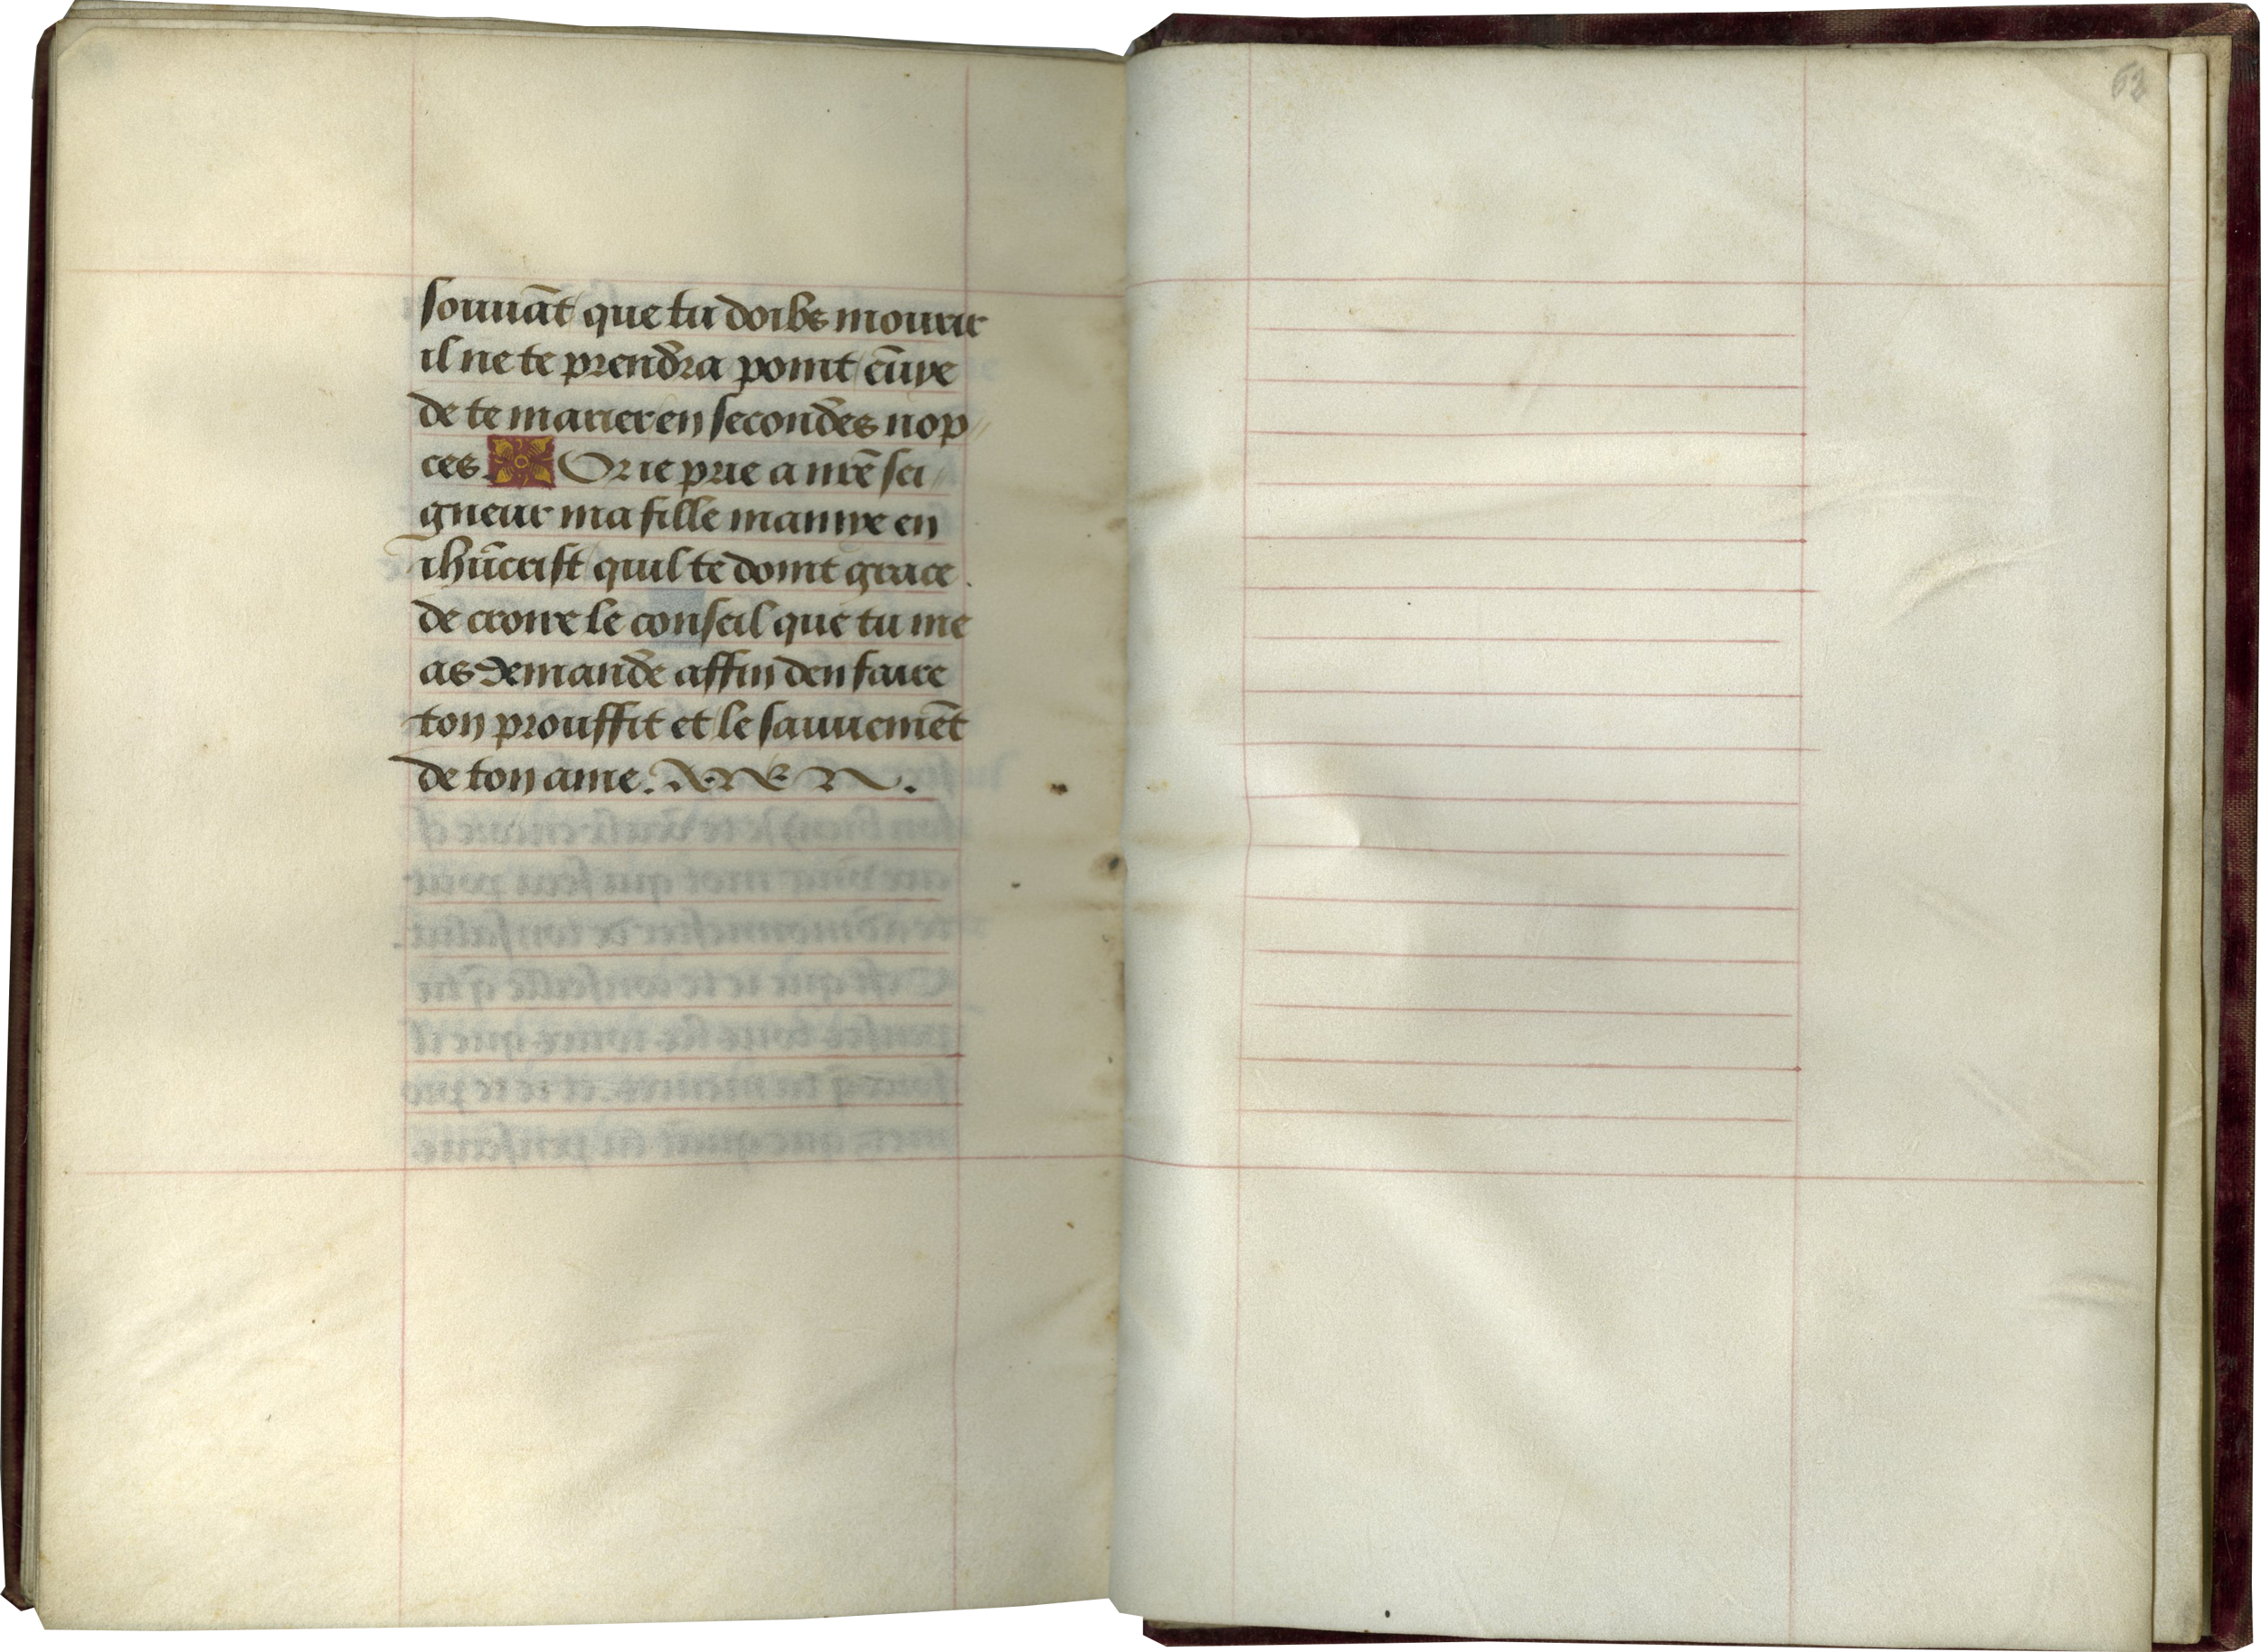 souuāt que tu doibs mourir
il ne te prendra point ēuye
de te marier en secondes nop
ces. Or ie prie a nr̄e sei
gneur ma fille mamye en
ihūcrist quil te doint grace
de croire le conseil que tu me
as demande affin den faire
ton prouffit et le sauuemēt
de ton ame.
62